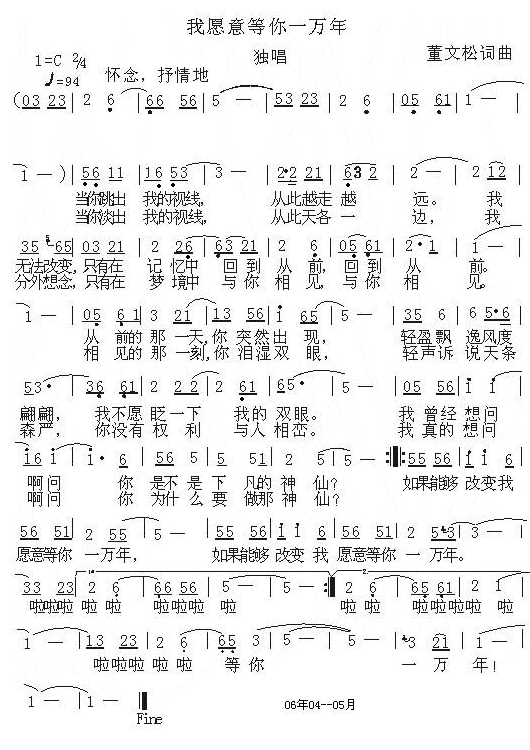 我愿意等你一万年
1=C 2/4 独唱 董文松词曲
♩=94 怀念，抒情地
(03 23 | 2 6 | 66 56 | 5 — | 53 23 | 2 6 | 05 61 | 1 — |
1 — ) | 56 11 | 16 53 | 3 — | 2·2 21 | 632 | 2 — | 2 12 |
当你跳出 我的视线， 从此越走 越 远。 我
当你淡出 我的视线， 从此天各 一 边， 我
35 65 | 03 21 | 2 26 | 63 21 | 2 6 | 05 61 | 2·1 | 1 — |
无法改变，只有在 记 忆中 回 到 从 前，回 到 从 前。
分外想念，只有在 梦 境中 与 你 相 见，与 你 相 见。
1 — | 05 61 | 3 21 | 53 21 | 61 13 | 5 — | 35 6 | 65·6 |
从 前的 那 一天,你 突然出 现， 轻盈飘 逸风度
相 见的 那 一刻,你 泪湿双 眼， 轻声诉 说天条
53· | 36 61 | 2 22 | 2 61 | 65· | 5 — | 05 56 | i i |
翩翩， 我不愿 眨一下 我的 双眼。 我 曾经 想问
森严， 你没有 权 利 与人 相峦。 我 真的 想问
i6 i | i· 6 | 51 23 | 51 23 | 2 5 | 5 — :‖: 55 56 | i i 6 |
啊问 你 是不 是下 凡的 神 仙？ 如果能够 改变我
啊问 你 为什 么要 做那 神 仙？
56 51 | 2 55 | 5 — | 55 56 | i i 6 | 56 51 | 53 | 5 — |
愿意等你 一万年， 如果能够 改变 我 愿意等你 一万年。
33 23 | 2 6 | 66 56 | 5 — | 5 — :‖ 2 6 | 65 61 | 2 1 |
啦啦啦啦 啦 啦 啦啦啦啦 啦 啦 啦 啦啦啦啦 啦
1 — | 13 23 | 2 6 | 65 3 | 5 — | 5 — | 3 21 | 1 — |
啦啦啦啦 啦 啦 等 你 一 万 年!
1 — | 1 — ‖
Fine 06年04--05月